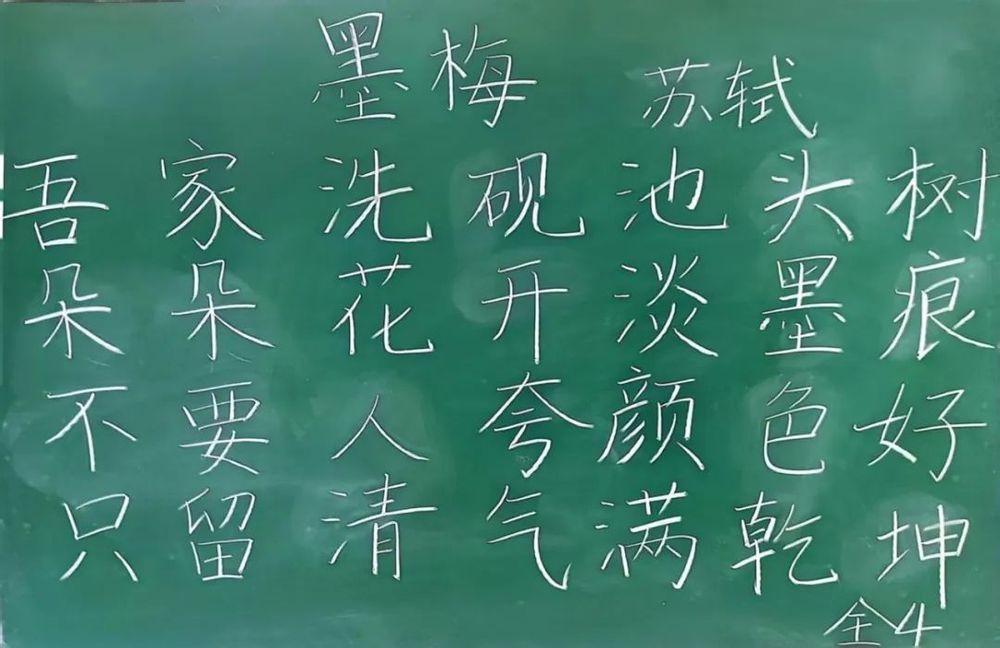 墨梅 苏轼
吾家洗砚池头树
朵朵花开淡墨痕
不要人夸颜色好
只留清气满乾坤
全4